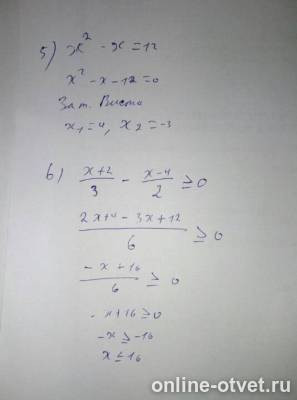 5) x² - x = 12
x² - x - 12 = 0
За т. Виета
x₁ = 4, x₂ = -3
6) (x+2)/3 - (x-4)/2 ≥ 0
(2x+4 - 3x+12)/6 ≥ 0
(-x+16)/6 ≥ 0
-x+16 ≥ 0
-x ≥ -16
x ≤ 16
online-otvet.ru